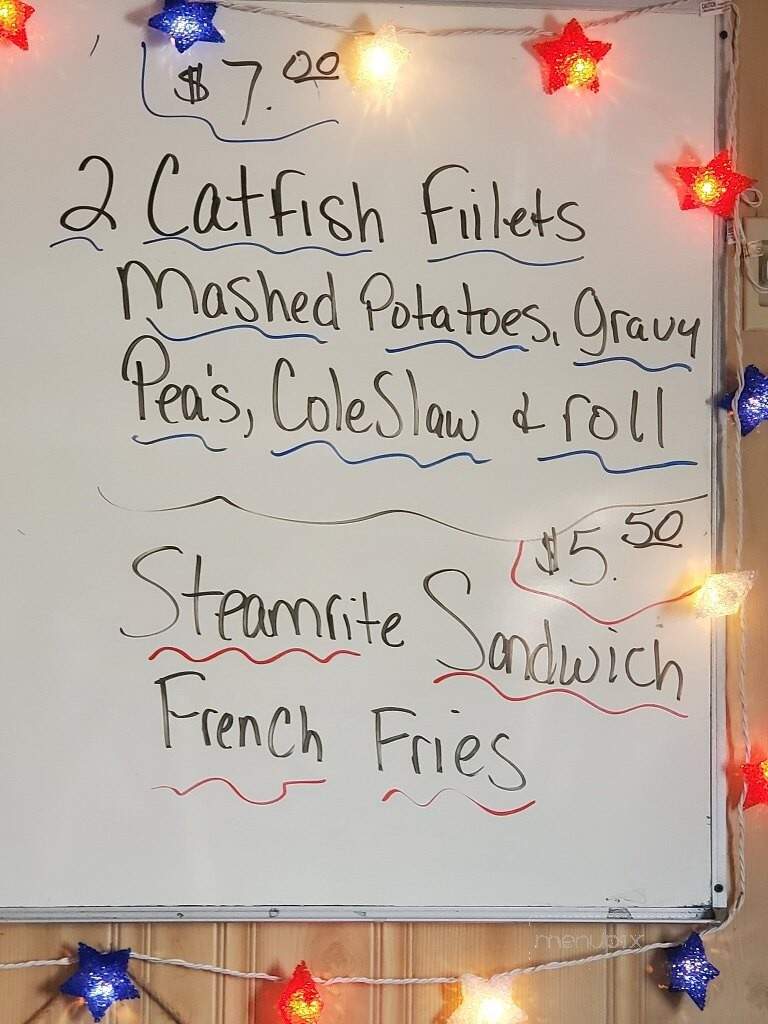 $7.00
2 Catfish Fiilets
Mashed Potatoes, gravy
Pea's, ColeSlaw & roll
$5.50
Steamrite Sandwich
French Fries
menupix